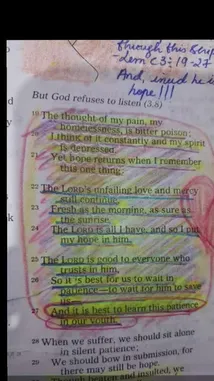 through this Scrip
- Lam C3:19-27
And, inded he is
hope!!!
d
But God refuses to listen (3.8)
19 The thought of my pain, my
homelessness, is bitter poison;
20 I think of it constantly and my spirit
is depressed.
21 Yet hope returns when I remember
this one thing:
22 The LORD's unfailing love and mercy
still continue,
23 Fresh as the morning, as sure as
the sunrise.
24 The LORD is all I have, and so I put
my hope in him.
k
25 The LORD is good to everyone who
trusts in him,
26 So it is best for us to wait in
patience—to wait for him to save
us—
27 And it is best to learn this patience
in our youth.
28 When we suffer, we should sit alone
in silent patience;
29 We should bow in submission, for
there may still be hope.
Though beaten and insulted, we